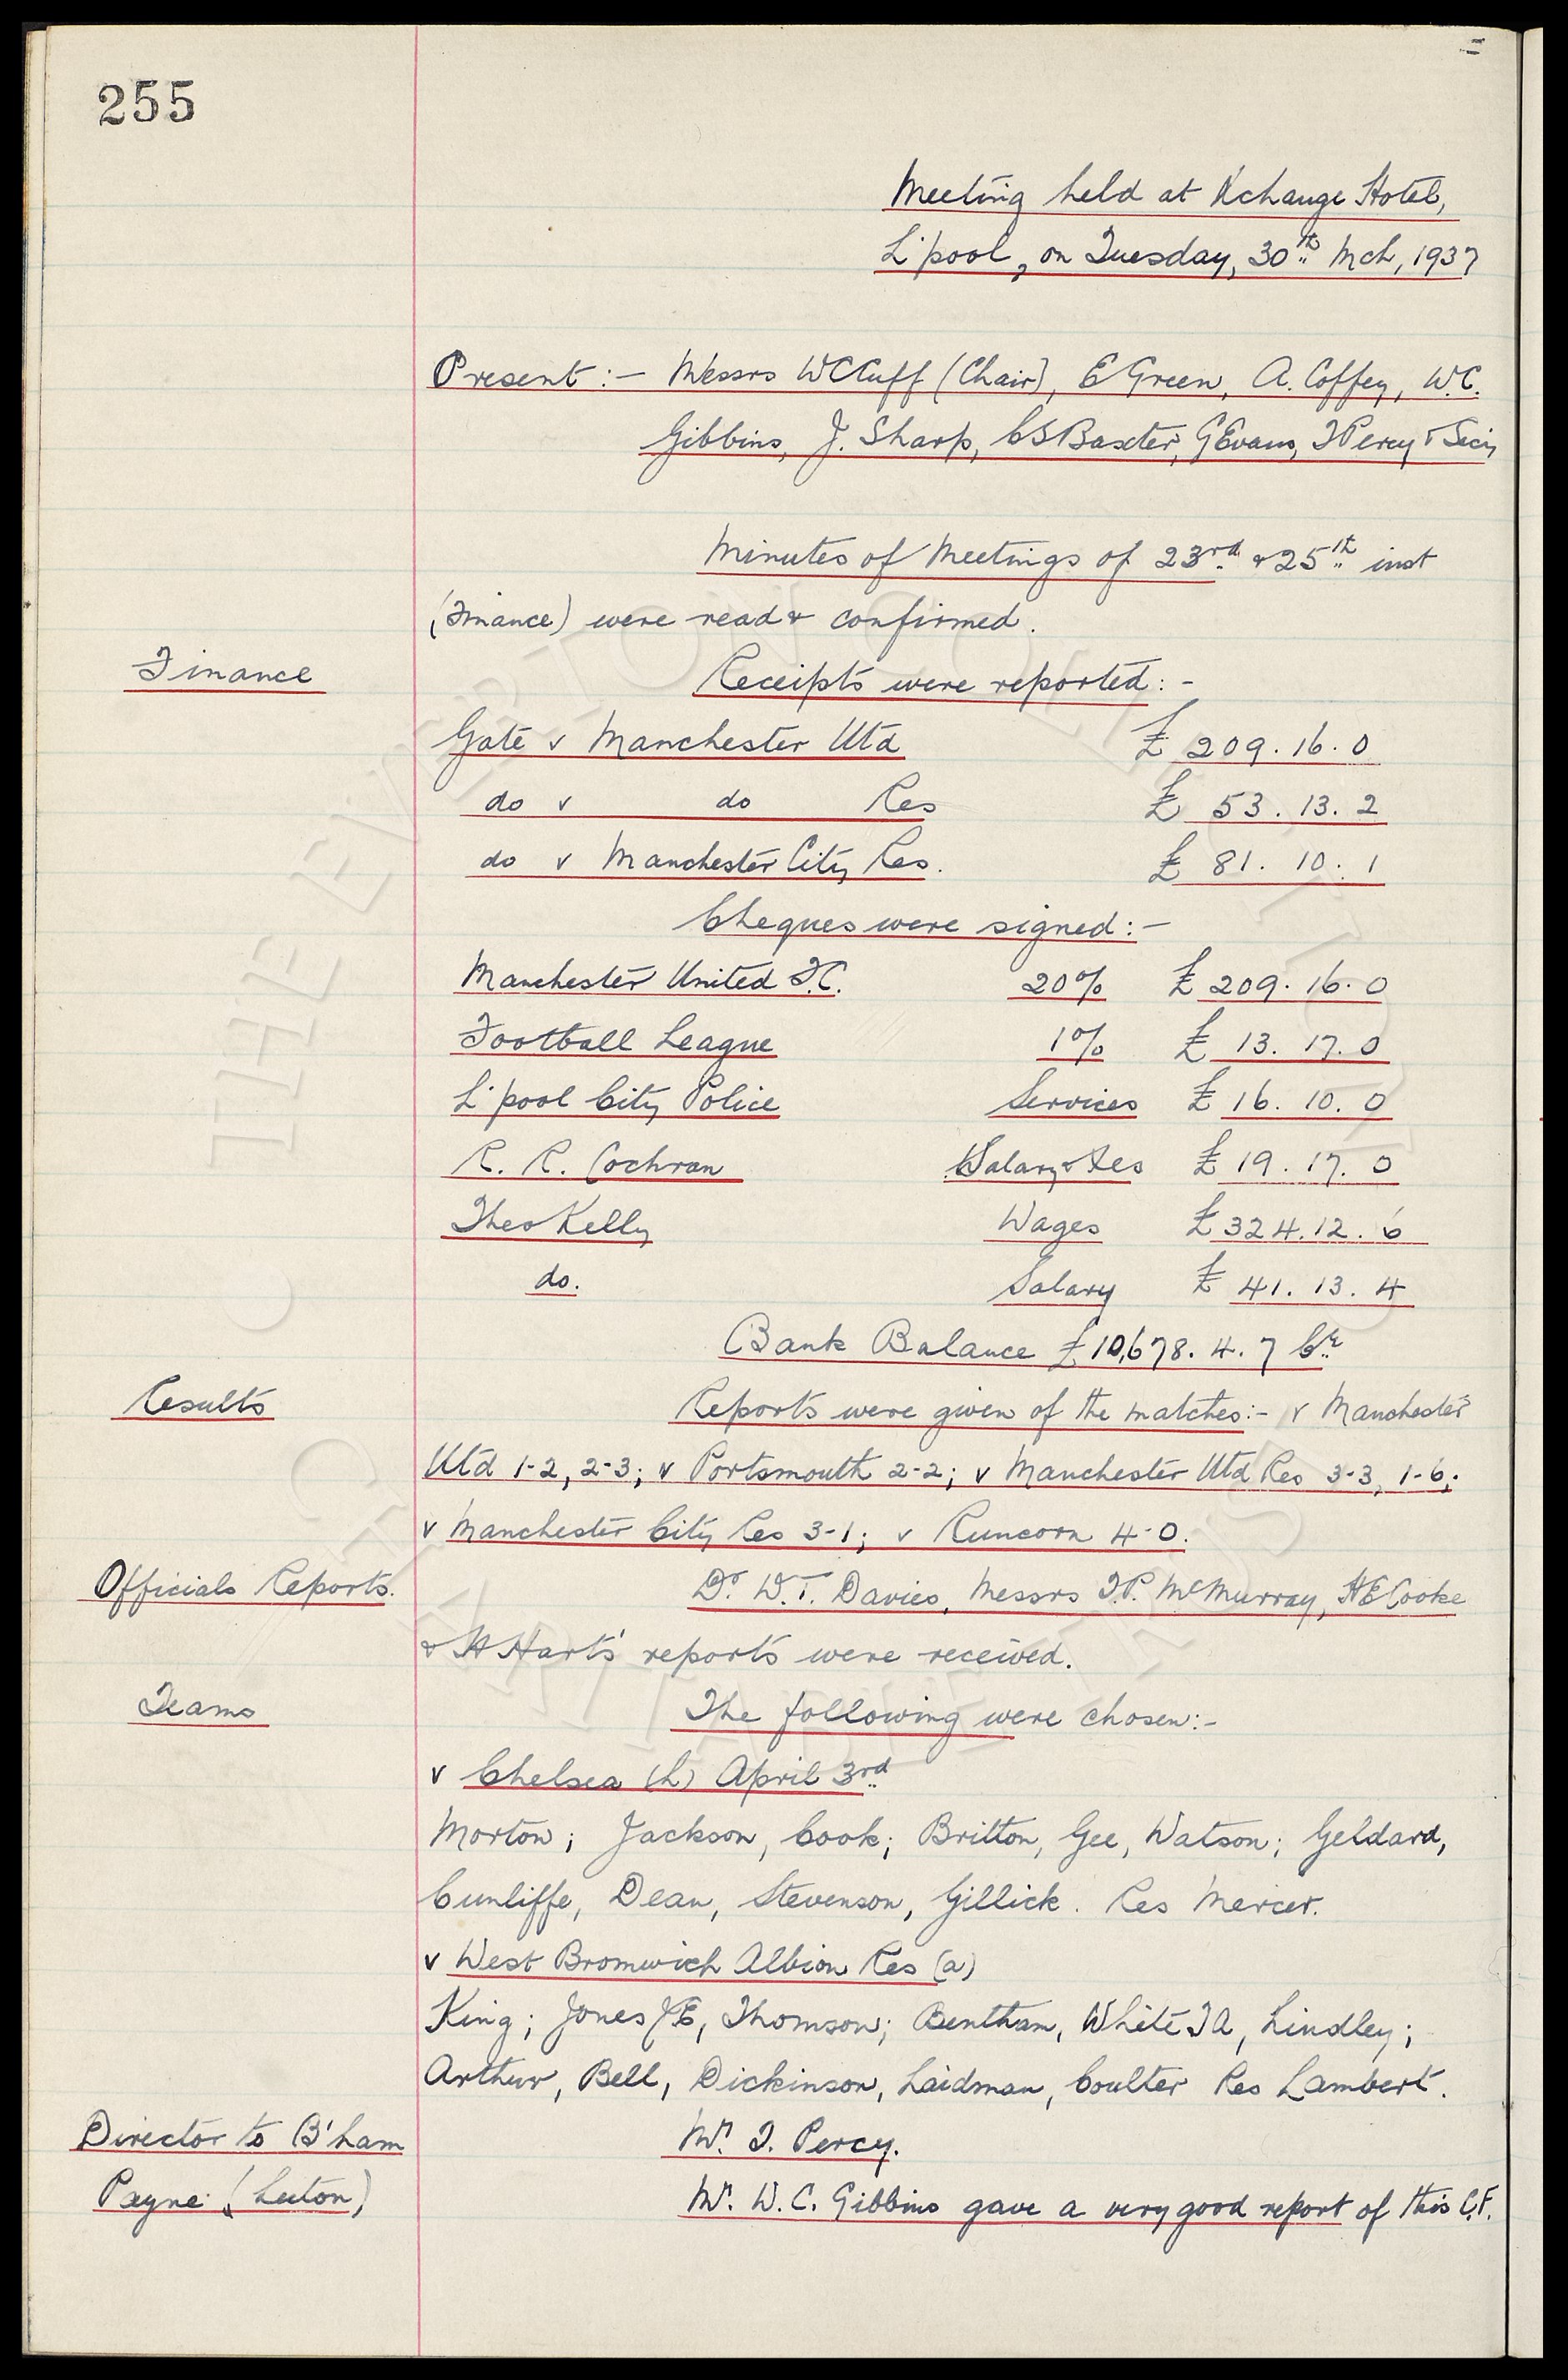 255
Meeting held at Xchange Hotel,
L'pool, on Tuesday, 30th Mch, 1937
Present :- Messrs W C Cuff (Chair), E Green, A. Coffey, W.C.
Gibbins, J. Sharp, C S Baxter, G Evans, T Percy & Secy
Minutes of Meetings of 23rd & 25th inst
(Finance) were read & confirmed.
Finance
Receipts were reported :-
Gate v Manchester Utd £ 209. 16. 0
do v do Res £ 53. 13. 2
do v Manchester City Res. £ 81. 10. 1
Cheques were signed :-
Manchester United F.C. 20% £ 209. 16. 0
Football League 1% £ 13. 17. 0
L'pool City Police Services £ 16. 10. 0
R. R. Cochran Salary & Tes £ 19. 17. 0
Theo Kelly Wages £ 324. 12. 6
do. Salary £ 41. 13. 4
Bank Balance £10,678. 4. 7 Cr
Results
Reports were given of the matches :- v Manchester
Utd 1-2, 2-3; v Portsmouth 2-2; v Manchester Utd Res 3-3, 1-6;
v Manchester City Res 3-1; v Runcorn 4-0.
Officials Reports.
Dr W.T. Davies, Messrs J.P. McMurray, H E Cooke
& H Harts' reports were received.
Teams
The following were chosen :-
v Chelsea (h) April 3rd
Morton; Jackson, Cook; Britton, Gee, Watson; Geldard,
Cunliffe, Dean, Stevenson, Gillick. Res Mercer.
v West Bromwich Albion Res (a)
King; Jones J E, Thomson; Bentham, White T A, Lindley;
Arthur, Bell, Dickinson, Laidman, Coulter Res Lambert.
Director to B'ham
Mr. T. Percy.
Payne (Luton)
Mr. W. C. Gibbins gave a very good report of this C.F.